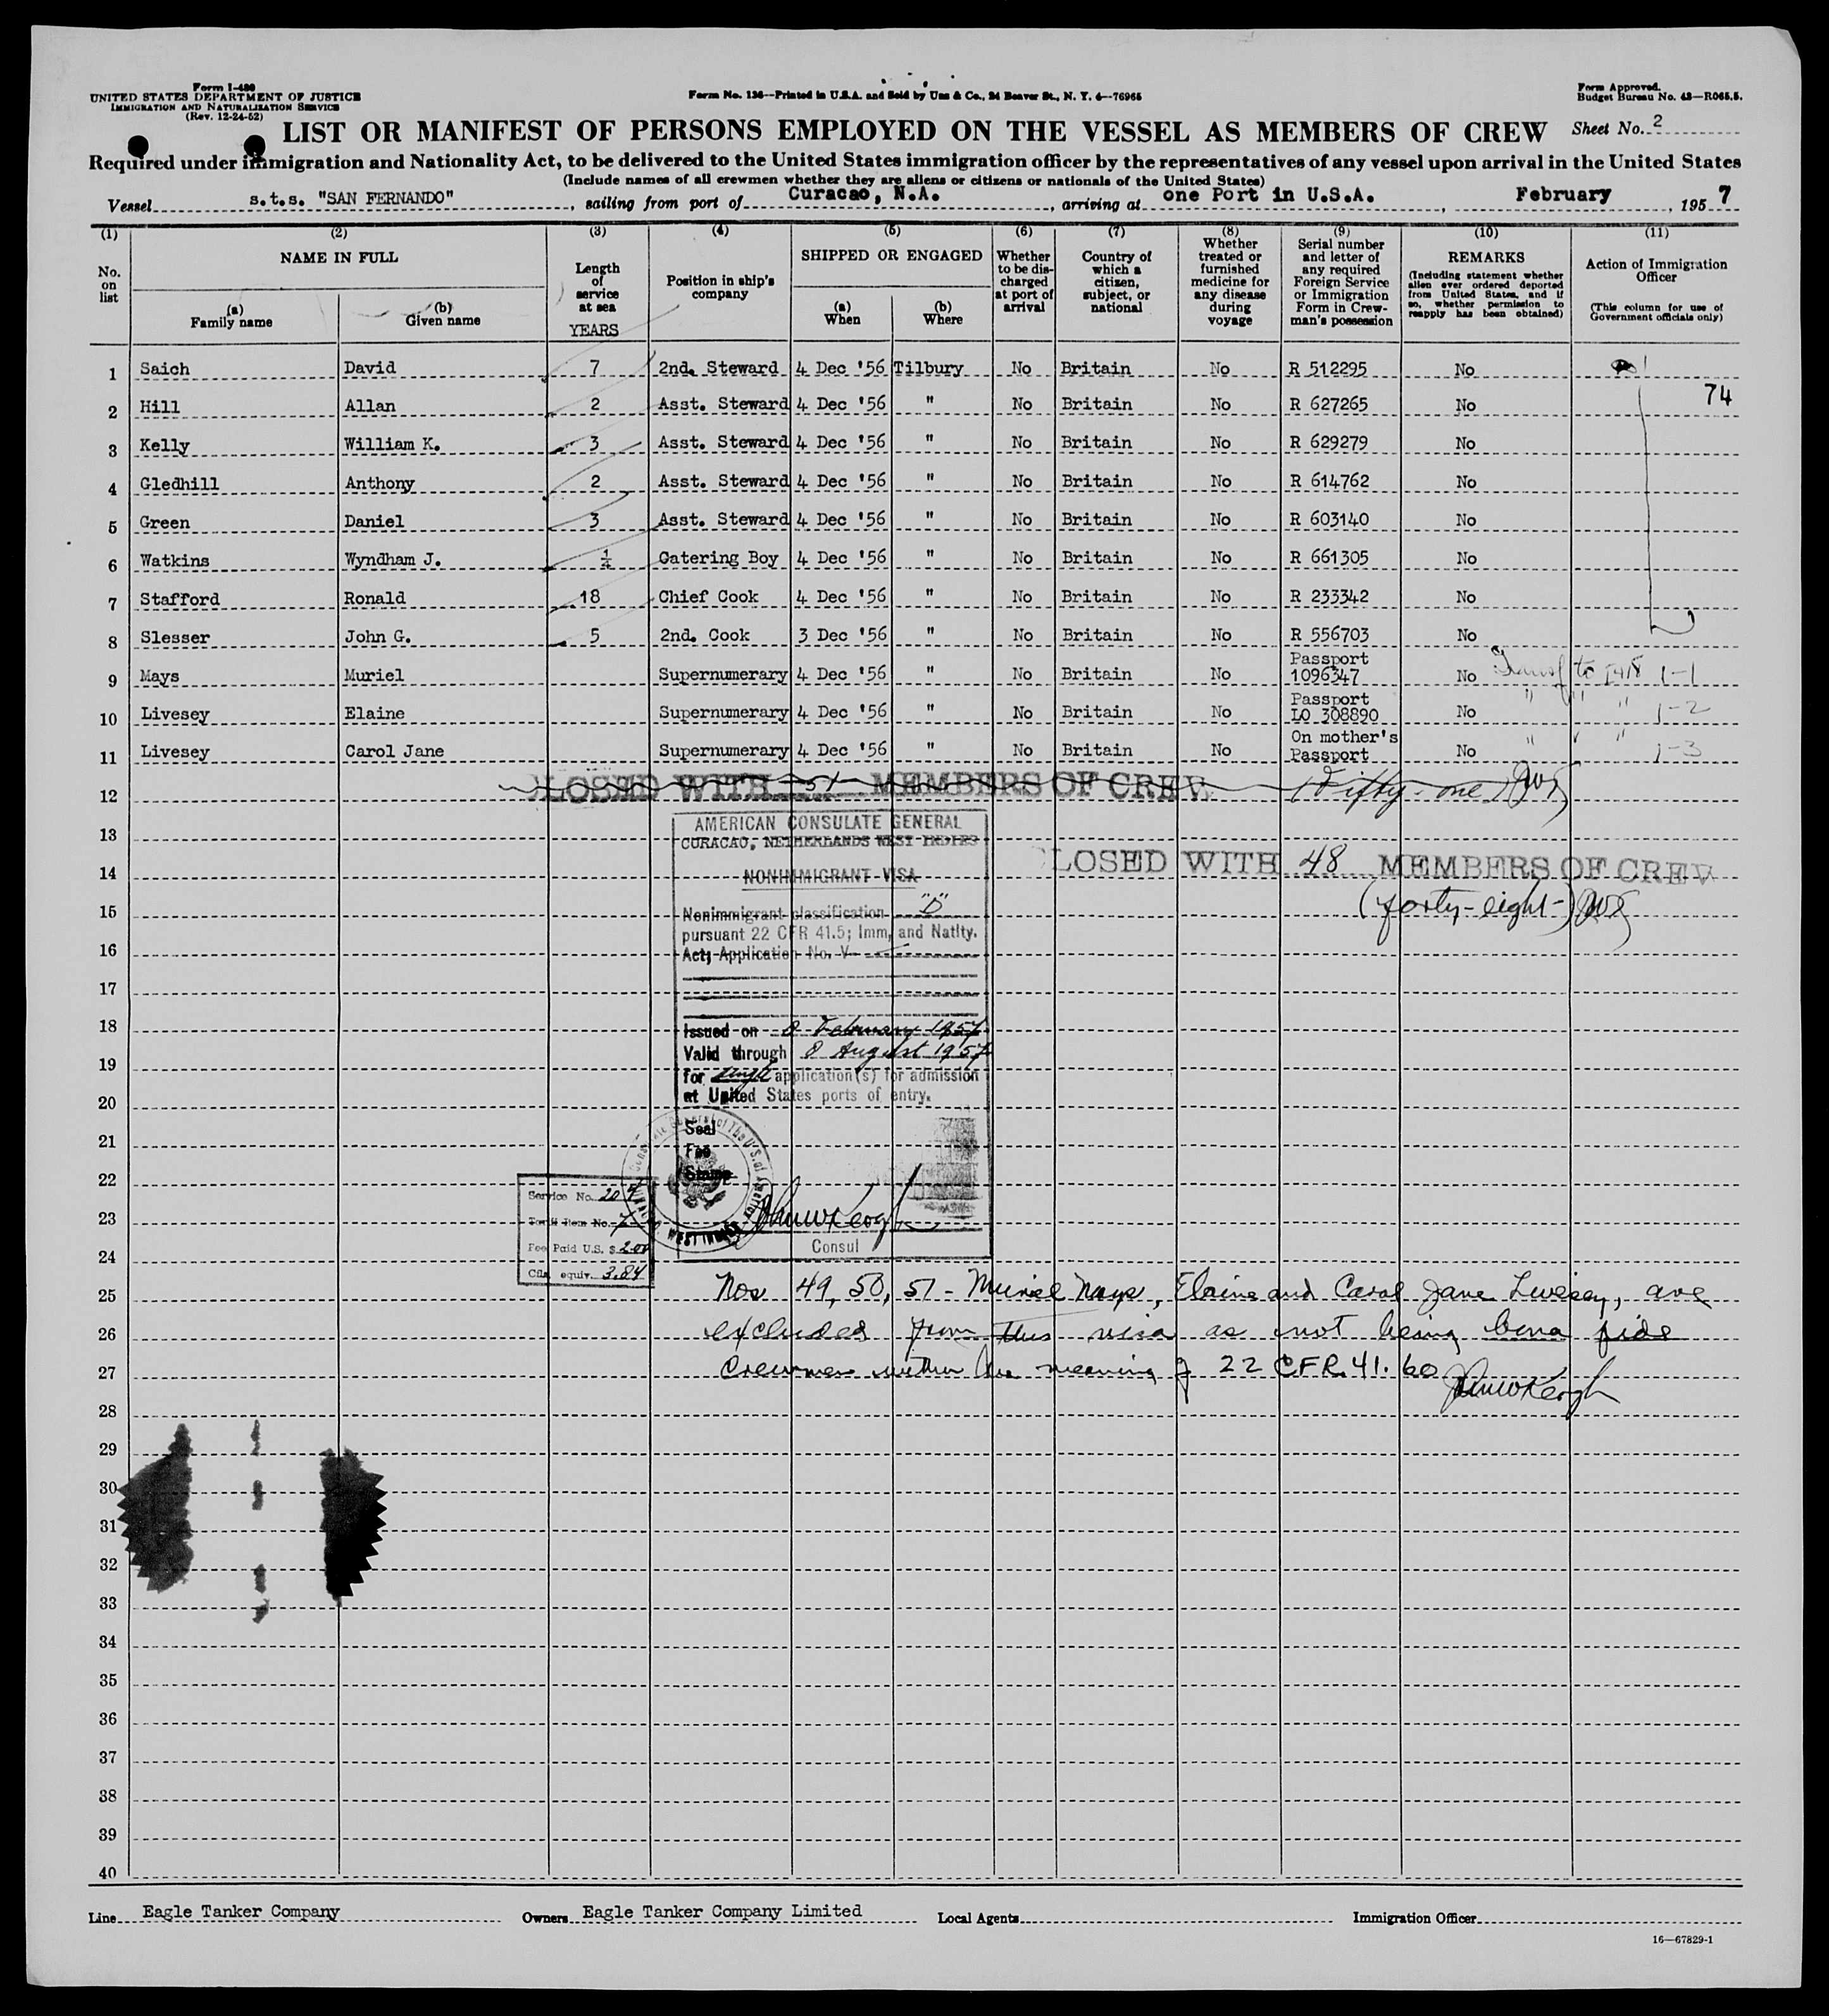 Form I-480
UNITED STATES DEPARTMENT OF JUSTICE
IMMIGRATION AND NATURALIZATION SERVICE
(Rev. 12-24-52)
Form No. 136—Printed in U.S.A. and Sold by Unz & Co., 24 Beaver St., N. Y. 4—76965
Form Approved.
Budget Bureau No. 43—R065.5.
LIST OR MANIFEST OF PERSONS EMPLOYED ON THE VESSEL AS MEMBERS OF CREW Sheet No. 2
Required under immigration and Nationality Act, to be delivered to the United States immigration officer by the representatives of any vessel upon arrival in the United States
(Include names of all crewmen whether they are aliens or citizens or nationals of the United States)
Vessel s.t.s. "SAN FERNANDO", sailing from port of Curacao, N.A., arriving at one Port in U.S.A., February, 195 7
(1) (2) (3) (4) (5) (6) (7) (8) (9) (10) (11)
No. on list
NAME IN FULL
(a) Family name
(b) Given name
Length of service at sea
YEARS
Position in ship's company
SHIPPED OR ENGAGED
(a) When
(b) Where
Whether to be discharged at port of arrival
Country of which a citizen, subject, or national
Whether treated or furnished medicine for any disease during voyage
Serial number and letter of any required Foreign Service or Immigration Form in Crewman's possession
REMARKS
(Including statement whether alien ever ordered deported from United States, and if so, whether permission to reapply has been obtained)
Action of Immigration Officer
(This column for use of Government officials only)
1 Saich David 7 2nd. Steward 4 Dec '56 Tilbury No Britain No R 512295 No
74
2 Hill Allan 2 Asst. Steward 4 Dec '56 " No Britain No R 627265 No
3 Kelly William K. 3 Asst. Steward 4 Dec '56 " No Britain No R 629279 No
4 Gledhill Anthony 2 Asst. Steward 4 Dec '56 " No Britain No R 614762 No
5 Green Daniel 3 Asst. Steward 4 Dec '56 " No Britain No R 603140 No
6 Watkins Wyndham J. ¼ Gatering Boy 4 Dec '56 " No Britain No R 661305 No
7 Stafford Ronald 18 Chief Cook 4 Dec '56 " No Britain No R 233342 No
8 Slesser John G. 5 2nd. Cook 3 Dec '56 " No Britain No R 556703 No
9 Mays Muriel Supernumerary 4 Dec '56 " No Britain No Passport 1096347 No Transf to I418 1-1
10 Livesey Elaine Supernumerary 4 Dec '56 " No Britain No Passport LO 308890 No " " " 1-2
11 Livesey Carol Jane Supernumerary 4 Dec '56 " No Britain No On mother's Passport No " " " 1-3
12 CLOSED WITH 51 MEMBERS OF CREW (Fifty-one)
AMERICAN CONSULATE GENERAL
13 CURACAO, NETHERLANDS WEST INDIES
14 NONIMMIGRANT VISA
LOSED WITH 48 MEMBERS OF CREW
(forty-eight-)
15 Nonimmigrant classification "D"
pursuant 22 CFR 41.5; Imm. and Natlty.
16 Act; Application No. V-
17
18 Issued on 8 February 1957
Valid through 8 August 1957
19 for single application(s) for admission
20 at United States ports of entry.
21 Seal
Fee
22 Stamp
Service No. 2051
23 Tariff Item No. 7
Fee Paid U.S. $ 2.00
24 Consul
Cfls. equiv. 3.84
JohnWKeogh
WEST INDIES
25 Nos 49, 50, 51 - Muriel Mays, Elaine and Carol Jane Livesey, are
26 excluded from this visa as not being bona fide
27 crewmen within the meaning of 22 CFR 41.60 JohnWKeogh
28
29
30
31
32
33
34
35
36
37
38
39
40
Line Eagle Tanker Company Owners Eagle Tanker Company Limited Local Agents Immigration Officer
16—67829-1